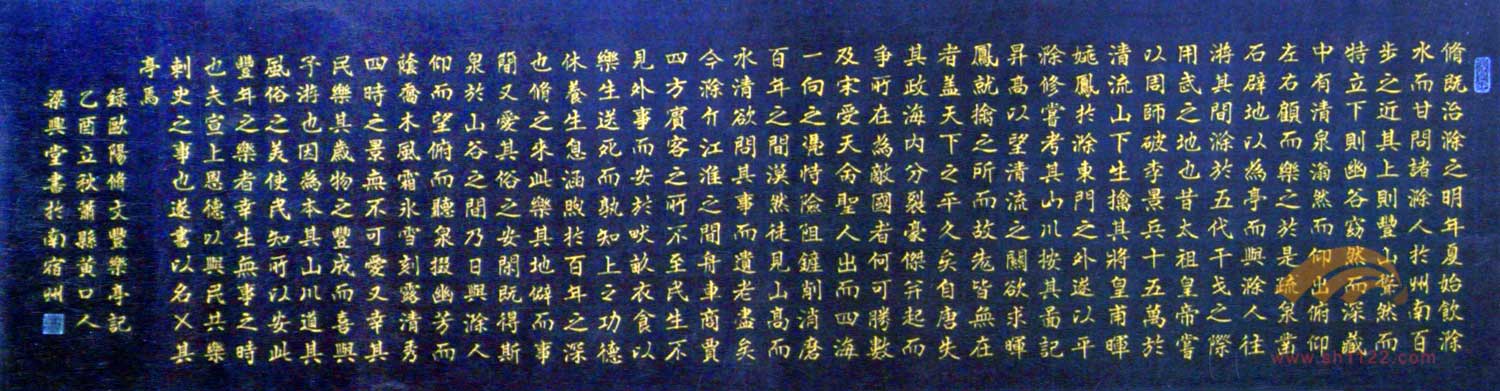 脩既治滁之明年夏始飲滁
水而甘問諸滁人於州南百
步之近其上則豐山聳然而
特立下則幽谷窈然而深藏
中有清泉滃然而仰出俯仰
左右顧而樂之於是疏泉鑿
石辟地以為亭而與滁人往
游其間滁於五代干戈之際
用武之地也昔太祖皇帝嘗
以周師破李景兵十五萬於
清流山下生擒其將皇甫暉
姚鳳於滁東門之外遂以平
滁修嘗考其山川按其圖記
昇高以望清流之關欲求暉
鳳就擒之所而故老皆無在
者盖天下之平久矣自唐失
其政海內分裂豪傑并起而
爭所在為敵國者何可勝數
及宋受天命聖人出而四海
一向之憑恃險阻鏟削消磨
百年之間漠然徒見山高而
水清欲問其事而遺老盡矣
今滁介江淮之間舟車商賈
四方賓客之所不至民生不
見外事而安於畎畝衣食以
樂生送死而孰知上之功德
休養生息涵煦於百年之深
也脩之來此樂其地僻而事
簡又愛其俗之安閑既得斯
泉於山谷之間乃日與滁人
仰而望俯而聽泉掇幽芳而
蔭喬木風霜冰雪刻露清秀
四時之景無不可愛又幸其
民樂其歲物之豐成而喜與
予游也因為本其山川道其
風俗之美使民知所以安此
豐年之樂者幸生無事之時
也夫宣上恩德以與民共樂
刺史之事也遂書以名㐅其
亭焉
錄歐陽脩文豐樂亭記
乙酉立秋蕭縣黃口人
梁興堂書於南宿州
www.sh1122.com